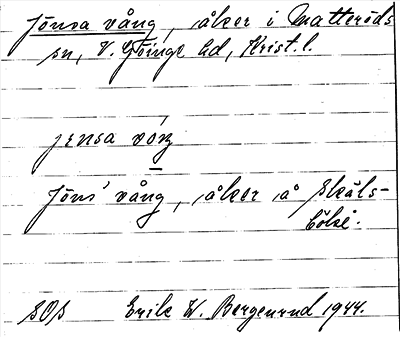 Jönsa vång, åker i Matteröds
sn, V. Göinge hd, Krist. l.
jensa vóŋ
Jöns' vång, åker å Skåls-
bökë.
SOS Erik W. Bergenrud 1944.